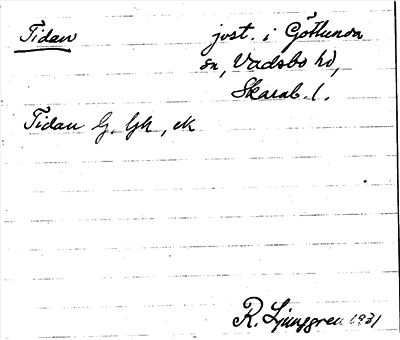 Tidan
jvst. i Götlunda
sn, Vadsbo hd,
Skarab. l.
Tidan G. Gk, ek
R. Ljunggren 1931